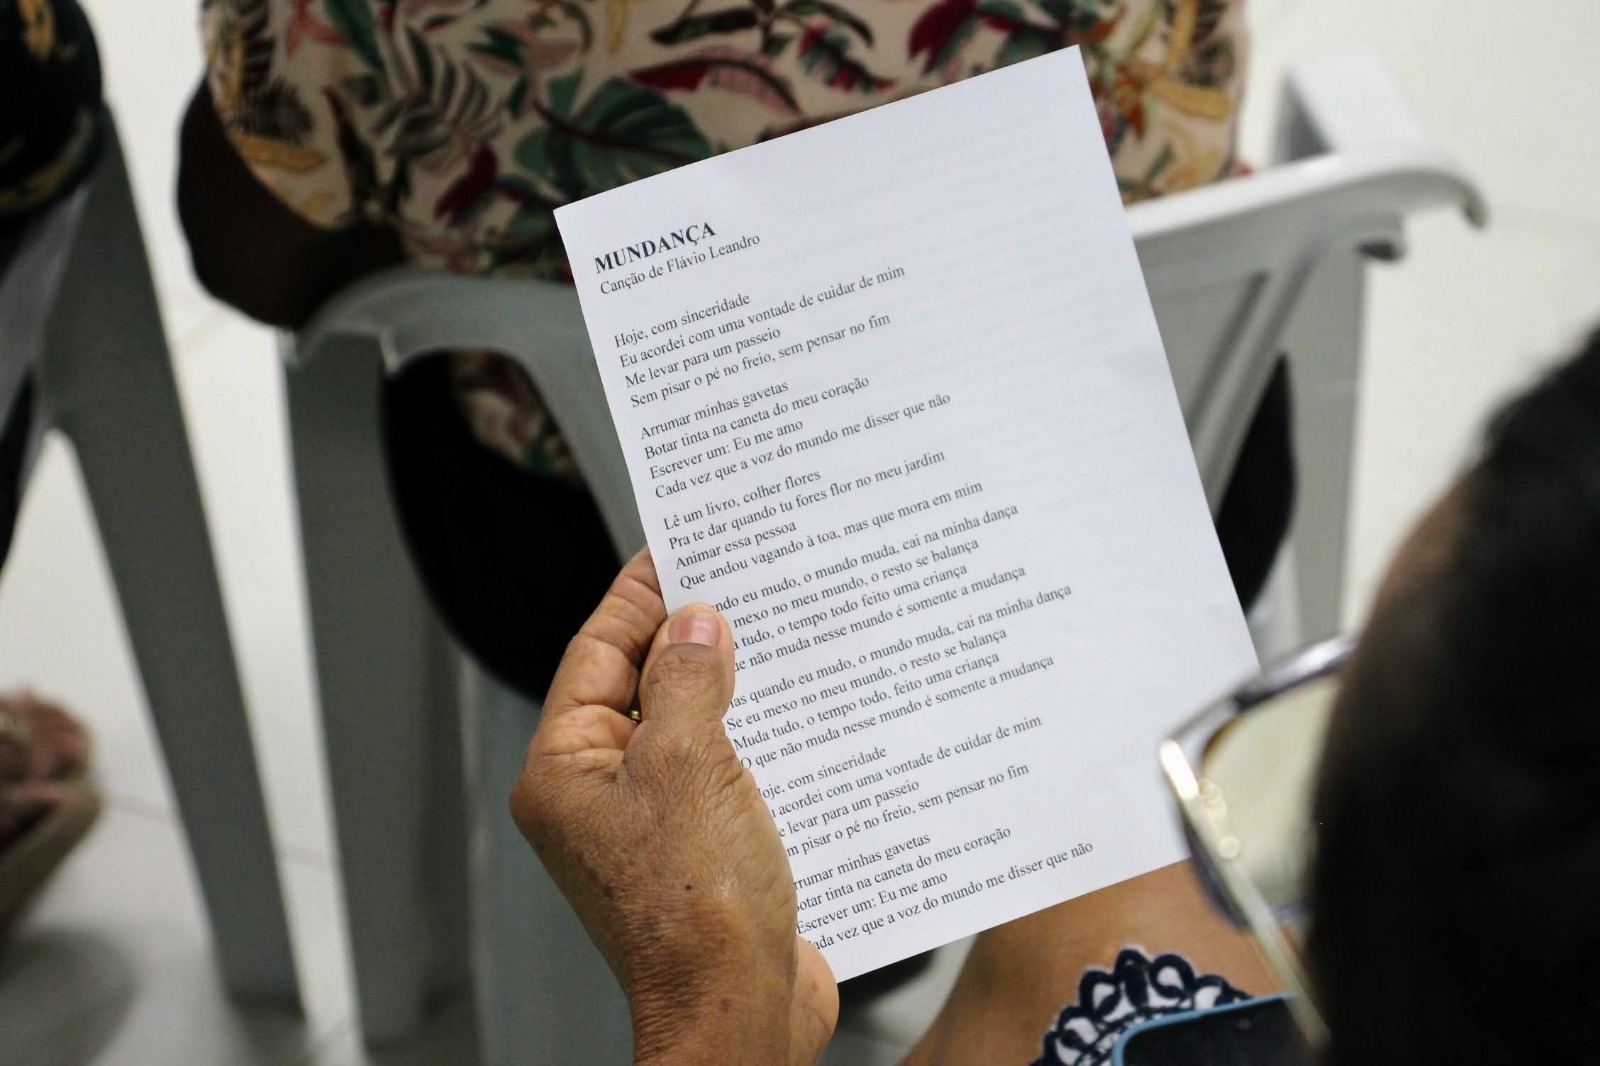 MUNDANÇA
Canção de Flávio Leandro
Hoje, com sinceridade
Eu acordei com uma vontade de cuidar de mim
Me levar para um passeio
Sem pisar o pé no freio, sem pensar no fim
Arrumar minhas gavetas
Botar tinta na caneta do meu coração
Escrever um: Eu me amo
Cada vez que a voz do mundo me disser que não
Lê um livro, colher flores
Pra te dar quando tu fores flor no meu jardim
Animar essa pessoa
Que andou vagando à toa, mas que mora em mim
ndo eu mudo, o mundo muda, cai na minha dança
mexo no meu mundo, o resto se balança
a tudo, o tempo todo feito uma criança
ue não muda nesse mundo é somente a mudança
as quando eu mudo, o mundo muda, cai na minha dança
Se eu mexo no meu mundo, o resto se balança
Muda tudo, o tempo todo, feito uma criança
O que não muda nesse mundo é somente a mudança
oje, com sinceridade
u acordei com uma vontade de cuidar de mim
e levar para um passeio
m pisar o pé no freio, sem pensar no fim
rrumar minhas gavetas
otar tinta na caneta do meu coração
Escrever um: Eu me amo
ada vez que a voz do mundo me disser que não